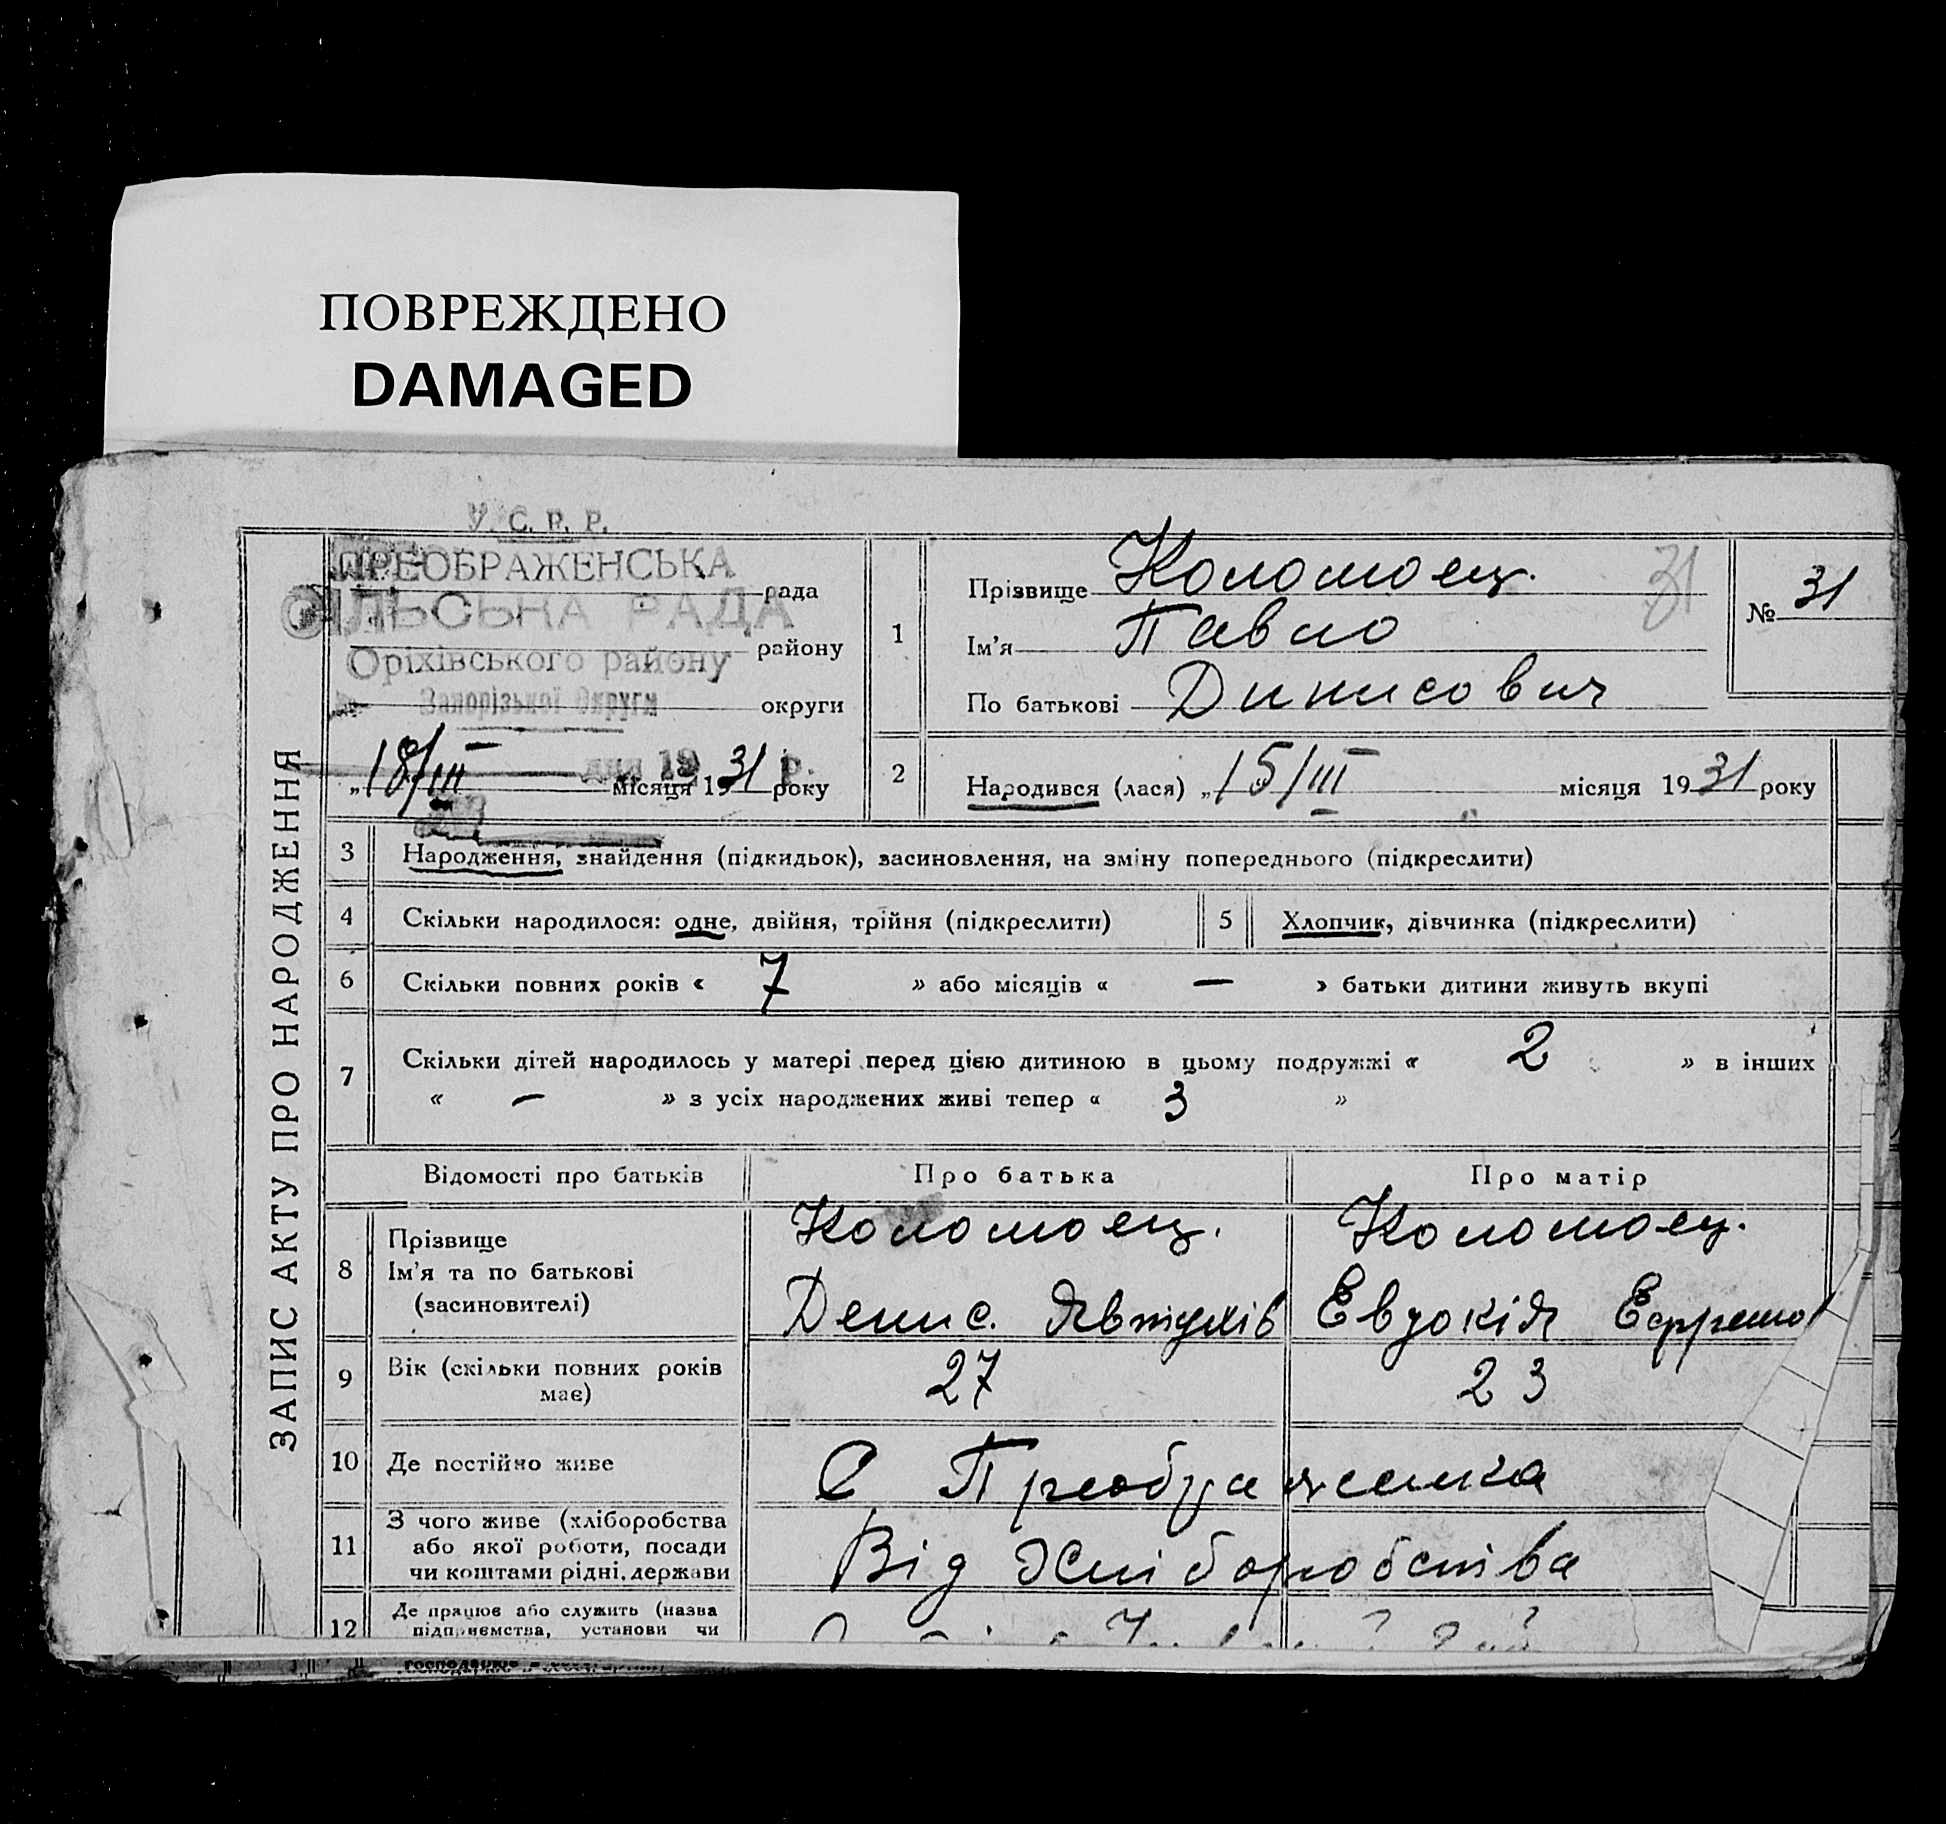 ПОВРЕЖДЕНО
DAMAGED
У. С. Р. Р.
ПРЕОБРАЖЕНСЬКА
рада
СІЛЬСЬКА РАДА
Оріхівського району
району
Запорізької Округи
округи
„18/III дня 19 р.
місяця 1931 року
ЗАПИС АКТУ ПРО НАРОДЖЕННЯ
1
Прізвище Коломоец.
Ім'я Павло
По батькові Динисович
31
№ 31
2 Народився (лася) „15/III місяця 1931 року
3 Народження, знайдення (підкидьок), засиновлення, на зміну попереднього (підкреслити)
4 Скільки народилося: одне, двійня, трійня (підкреслити)
5 Хлопчик, дівчинка (підкреслити)
6 Скільки повних років « 7 » або місяців « — » батьки дитини живуть вкупі
7 Скільки дітей народилось у матері перед цією дитиною в цьому подружжі « 2 » в інших
« — » з усіх народжених живі тепер « 3 »
Відомості про батьків Про батька Про матір
8 Прізвище Коломоец. Коломоец.
Ім'я та по батькові
(засиновителі) Денис. Явтухів Евдокія Ефремо
9 Вік (скільки повних років
має) 27 23
10 Де постійно живе С Преображенка
11 З чого живе (хліборобства
або якої роботи, посади
чи коштами рідні, держави Від Хліборобства
12 Де працює або служить (назва
підприємства, установи чи